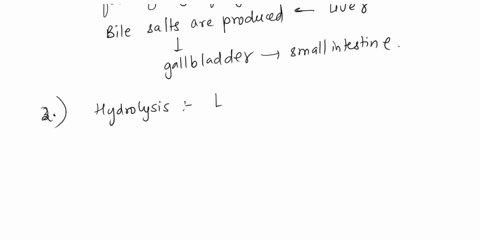 Bile salts are produced ← Liver
↓
gallbladder → small intestine.
2.) Hydrolysis :- L